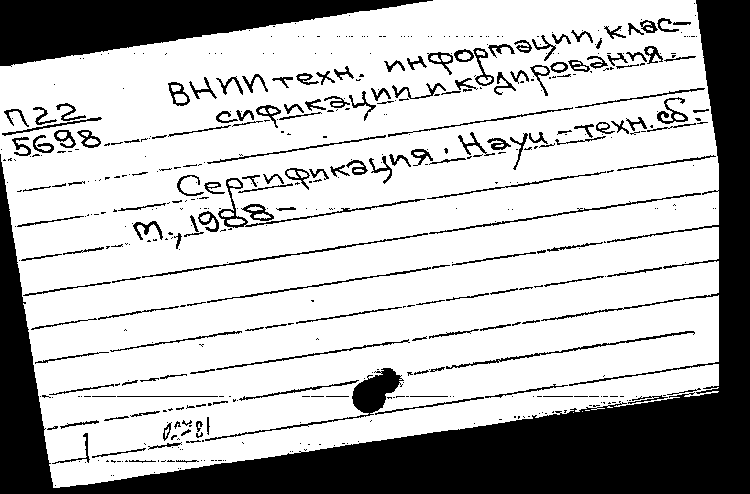 ВНИИ техн. информации, клас-
сификации и кодирования.
П22
5698
Сертификация: Науч.-техн. сб.-
М., 1988-
1